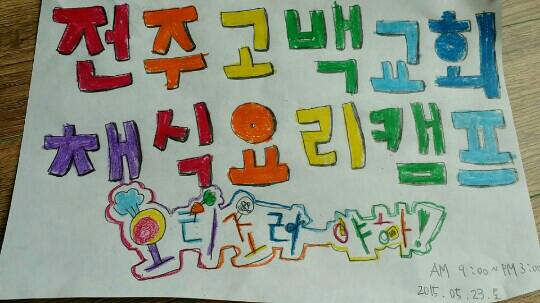 전주고백교회
채식요리캠프
요리조리 야하!!
AM 9:00~PM 3:00
2015. 05. 23. 토